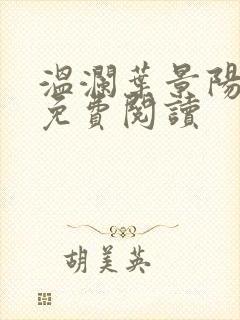 溫瀾葉景陽
免費閱讀
胡美英